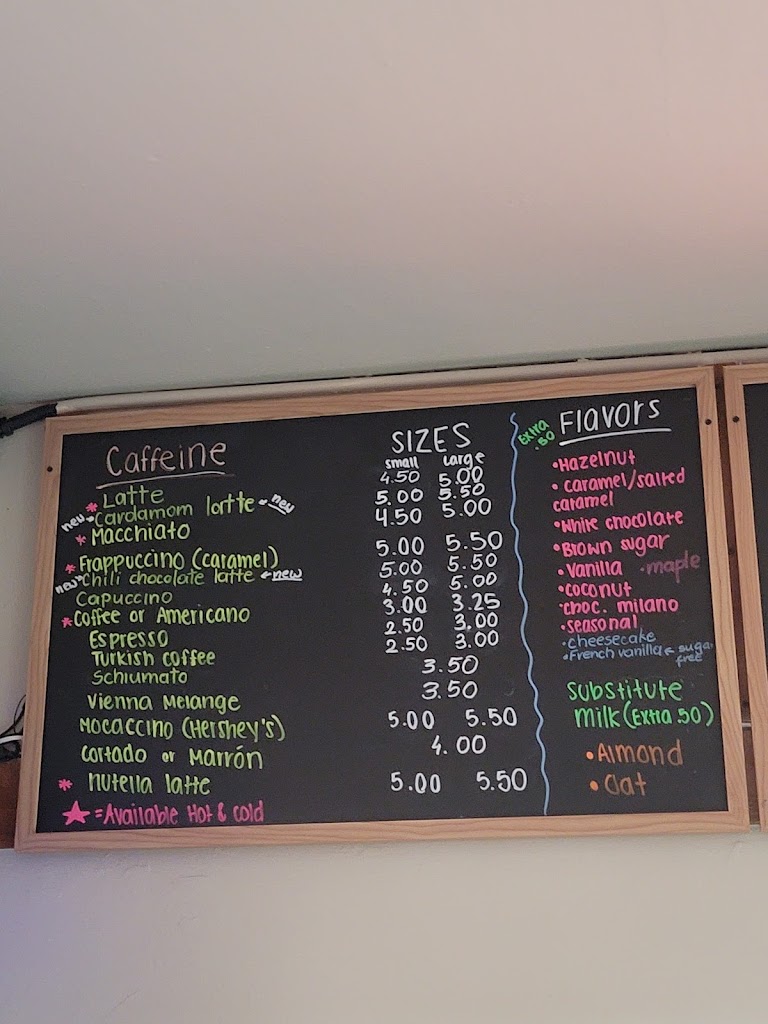 Caffeine
SIZES
small large
* Latte 4.50 5.00
new * Cardamom latte ← new 5.00 5.50
* Macchiato 4.50 5.00
* Frappuccino (caramel) 5.00 5.50
new * Chili chocolate latte ← new 5.00 5.50
Capuccino 4.50 5.00
* Coffee or Americano 3.00 3.25
Espresso 2.50 3.00
Turkish coffee 2.50 3.00
Schiumato 3.50
Vienna Melange 3.50
Mocaccino (Hershey's) 5.00 5.50
Cortado or Marrón 4.00
* Nutella latte 5.00 5.50
★ = Available Hot & cold
Extra .50
Flavors
• Hazelnut
• caramel/salted
caramel
• White chocolate
• Brown sugar
• Vanilla • maple
• coconut
• choc. milano
• seasonal
• cheesecake
• French vanilla ← sugar free
Substitute
Milk (Extra 50)
• Almond
• Oat